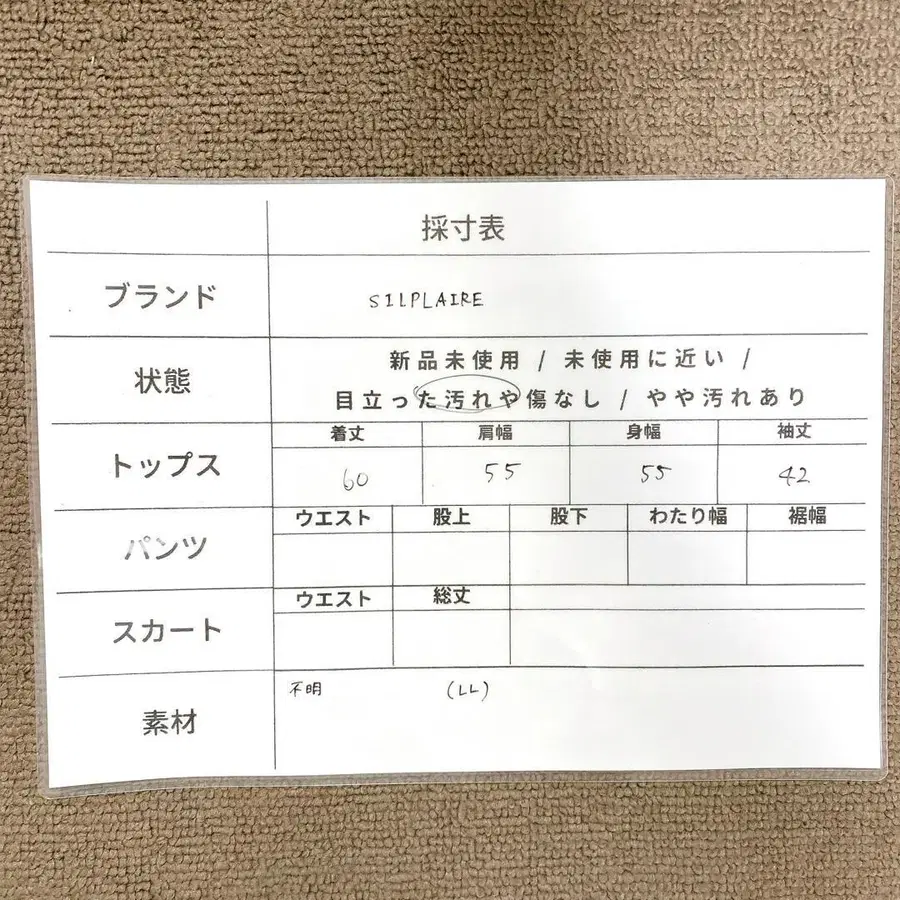 採寸表
ブランド SILPLAIRE
状態 新品未使用 / 未使用に近い /
目立った汚れや傷なし / やや汚れあり
トップス 着丈 肩幅 身幅 袖丈
60 55 55 42
パンツ ウエスト 股上 股下 わたり幅 裾幅
スカート ウエスト 総丈
素材 不明 (LL)